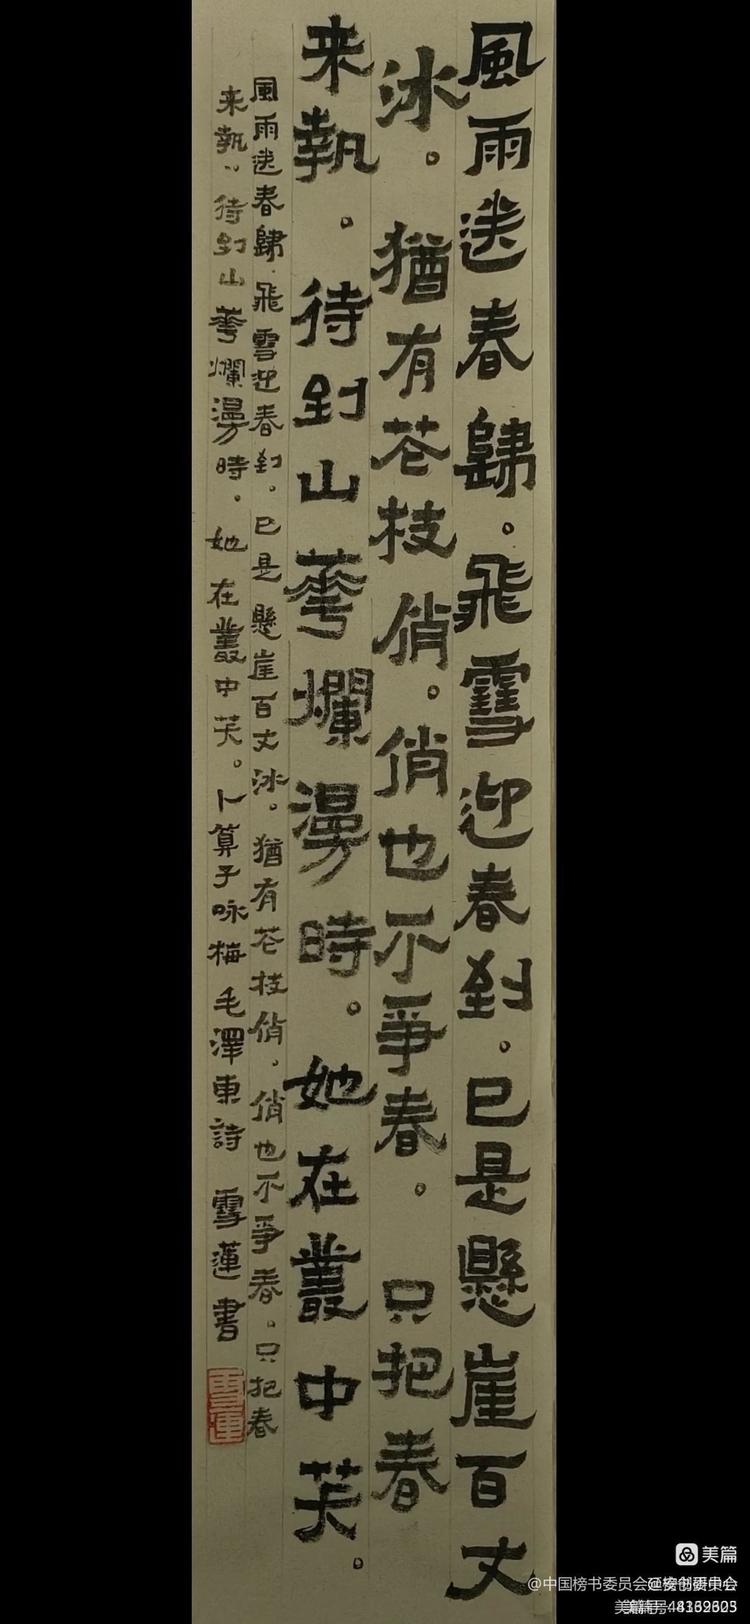 風雨送春歸。飛雪迎春到。已是懸崖百丈
冰。猶有花枝俏。俏也不爭春。只把春
来報。待到山華爛漫時。她在叢中笑。
風雨送春歸。飛雪迎春到。已是懸崖百丈冰。猶有花枝俏。俏也不爭春。只把春
来報。待到山華爛漫時。她在叢中笑。卜算子咏梅毛澤東詩 雪蓮書
雪蓮
美篇
@中国榜书委员会延安创研中心